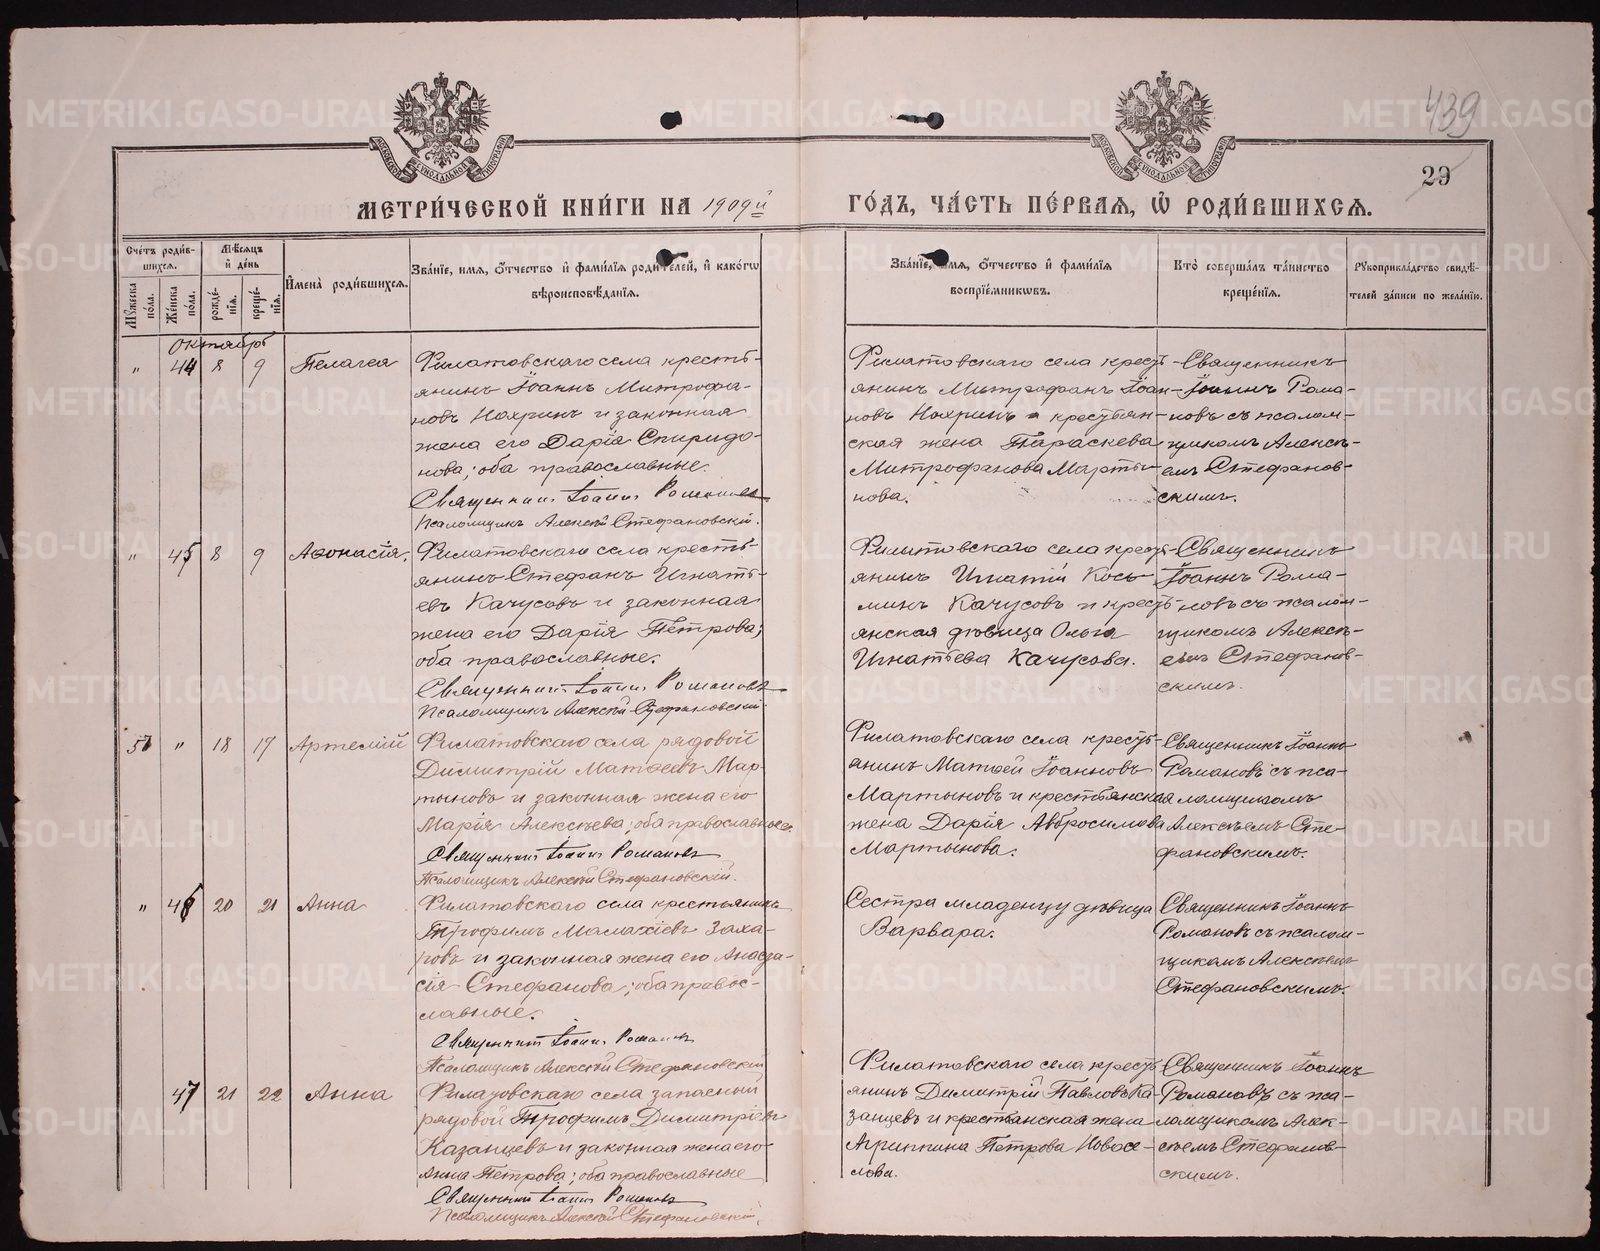 439
29
МЕТРИ́ЧЕСКОЙ КНИ́ГИ НА 1909й
ГО́ДЪ, ЧА́СТЬ ПЕ́РВАЯ, Ѡ РОДИ́ВШИХСЯ.
Сче́тъ роди́в-
шихся.
Мꙋ́жеска по́ла.
Же́нска по́ла.
Мѣ́сяцъ
и҆ де́нь
рожде́нїя.
креще́нїя.
И҆мена̀ роди́вшихся.
Зва́нїе, имя, о҆́тчество и҆ фами́лїя роди́телей, и҆ како́гѡ
вѣроисповѣ́данїя.
Зва́нїе, имя, о҆́тчество и҆ фами́лїя
воспрїе́мникѡвъ.
Кто̀ соверша́лъ та́инство
креще́нїя.
Рꙋкоприкла́дство свидѣ́-
телей за́писи по жела́нїю.
Октябрь
" 44 8 9 Пелагея
Филатовскаго села кресть-
янинъ Іоаннъ Митрофа-
новъ Нохринъ и законная
жена его Дарія Спиридо-
нова; оба православные.
Священникъ Іоаннъ Романовъ
Псаломщикъ Алексѣй Стефановскій.
Филатовскаго села кресть-
янинъ Митрофанъ Іоан-
новъ Нохринъ и крестьян-
ская жена Параскева
Митрофанова Марты-
нова.
Священникъ
Іоаннъ Рома-
новъ съ псалом-
щикомъ Алексѣ-
емъ Стефанов-
скимъ.
" 45 8 9 Аѳонасія.
Филатовскаго села кресть-
янинъ Стефанъ Игнать-
евъ Качусовъ и законная
жена его Дарія Петрова;
оба православные.
Священникъ Іоаннъ Романовъ
Псаломщикъ Алексѣй Стефановскій
Филатовскаго села кресть-
янинъ Игнатій Кось-
минъ Качусовъ и кресть-
янская дѣвица Ольга
Игнатьева Качусова.
Священникъ
Іоаннъ Рома-
новъ съ псалом-
щикомъ Алексѣ-
емъ Стефанов-
скимъ.
51 " 18 19 Артемій
Филатовскаго села рядовой
Димитрій Матѳеевъ Мар-
тыновъ и законная жена его
Марія Алексѣева; оба православные.
Священникъ Іоаннъ Романовъ
Псаломщикъ Алексѣй Стефановскій.
Филатовскаго села кресть-
янинъ Матѳей Іоанновъ
Мартыновъ и крестьянская
жена Дарія Авбросимова
Мартынова.
Священникъ Іоаннъ
Романовъ съ пса-
ломщикомъ
Алексѣемъ Сте-
фановскимъ.
" 46 20 21 Анна
Филатовскаго села крестьянинъ
Трофимъ Малахіевъ Заха-
ровъ и законная жена его Анаста-
сія Стефанова; оба правос-
лавные.
Священникъ Іоаннъ Романовъ
Псаломщикъ Алексѣй Стефановскій
Сестра младенцу дѣвица
Варвара.
Священникъ Іоаннъ
Романовъ съ псалом-
щикомъ Алексѣемъ
Стефановскимъ.
47 21 22 Анна
Филатовскаго села запасный
рядовой Трофимъ Димитріевъ
Казанцевъ и законная жена его
Анна Петрова; оба православные
Священникъ Іоаннъ Романовъ
Псаломщикъ Алексѣй Стефановскій.
Филатовскаго села кресть-
янинъ Димитрій Павловъ Ка-
занцевъ и крестьянская жена
Агриппина Петрова Новосе-
лова.
Священникъ Іоаннъ
Романовъ съ пса-
ломщикомъ Алек-
сѣемъ Стефанов-
скимъ.